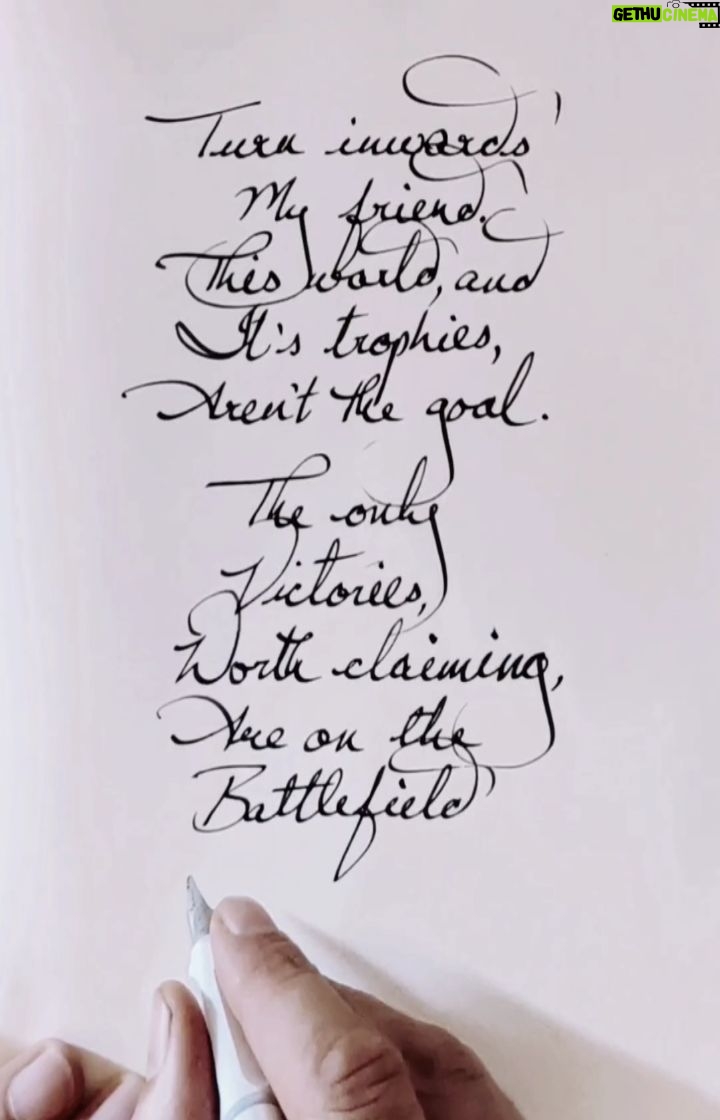 GETHU CINEMA
Turn inwards
My friend.
This world, and
It's trophies,
Aren't the goal.
The only
Victories,
Worth claiming,
Are on the
Battlefield